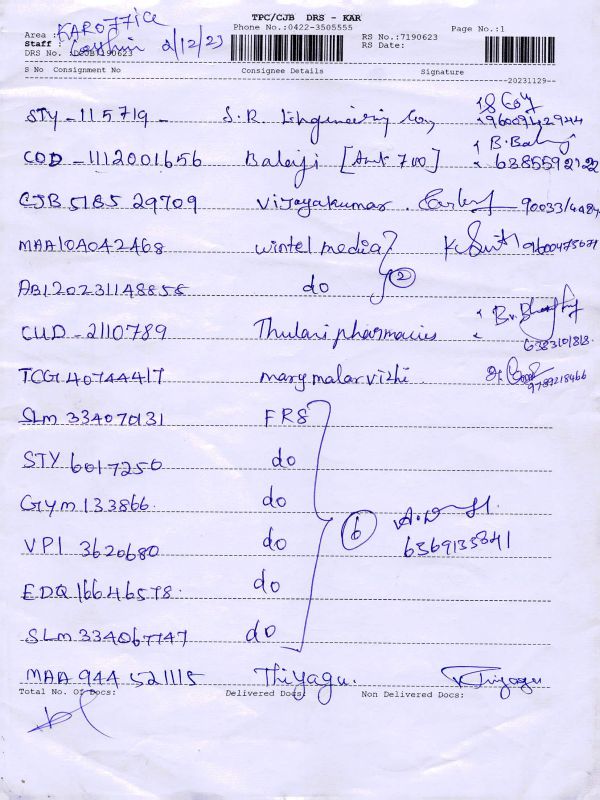 TPC/CJB DRS - KAR
Phone No.:0422-3505555
Page No.:1
Area : KAROffice
RS No.:7190623
Staff : 2/12/23
RS Date:
DRS No. :
S No Consignment No Consignee Details Signature
20231129
STY - 115719 - S.R. Engineering Coy
COD - 1112001656 Balaji [Amt 700] B. Balaji
CJB 5185 29709 Vijayakumar.
MAA10A042468 Wintel media
AB120231148855 do 2
CUD - 2110789 Thulasi pharmacies
TCG1 40744417 mary malar vizhi.
9789218466
SLM 334070131 FRS
STY 6017250 do
GYM 133866 do
VPI 3620680 do 6
6369135841
EDQ 16646578 do
SLM 334067747 do
MAA 944 521115 Thiyagu. Thiyagu
Total No. Of Docs: Delivered Docs: Non Delivered Docs: